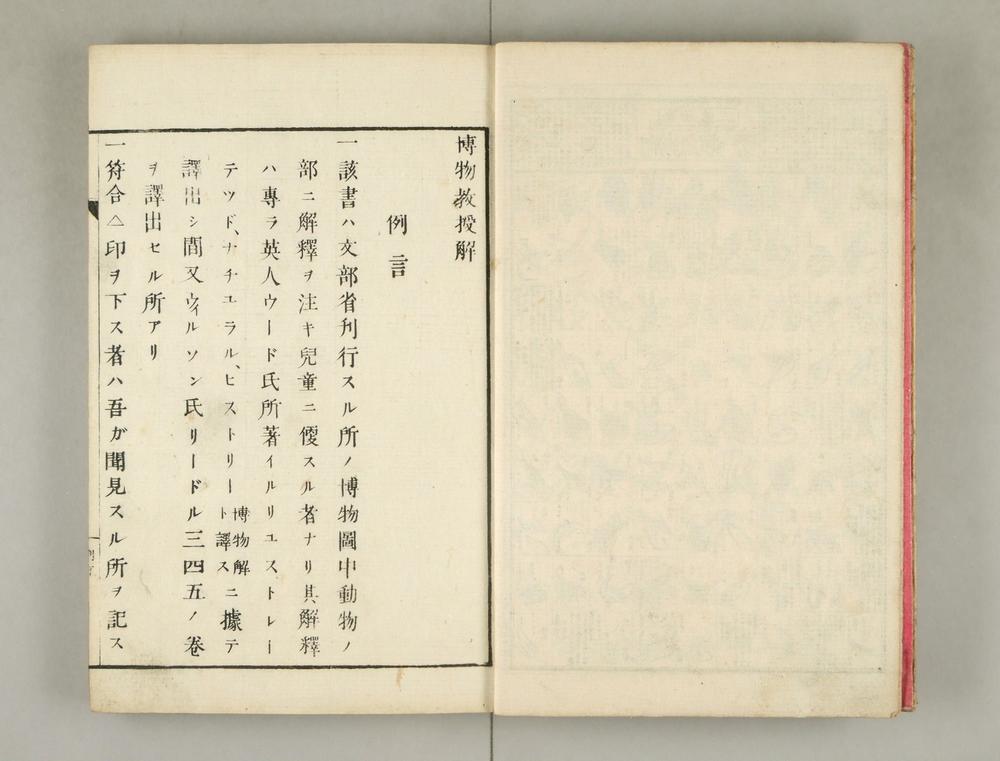 博物教授解
例言
一該書ハ文部省刋行スル所ノ博物圖中動物ノ
部ニ解釋ヲ注キ兒童ニ便スル者ナリ其解釋
ハ專ラ英人ウード氏所著イルリユストレー
テツド、ナチユラル、ヒストリー博物解ト譯スニ據テ
譯出シ間又ウィルソン氏リードル三四五ノ卷
ヲ譯出セル所アリ
一符合△印ヲ下ス者ハ吾ガ聞見スル所ヲ記ス